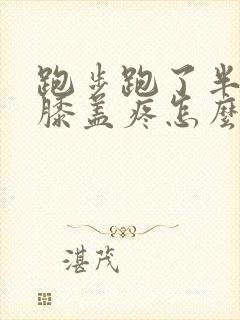 跑步跑了半
膝盖疼怎麼
湛茂